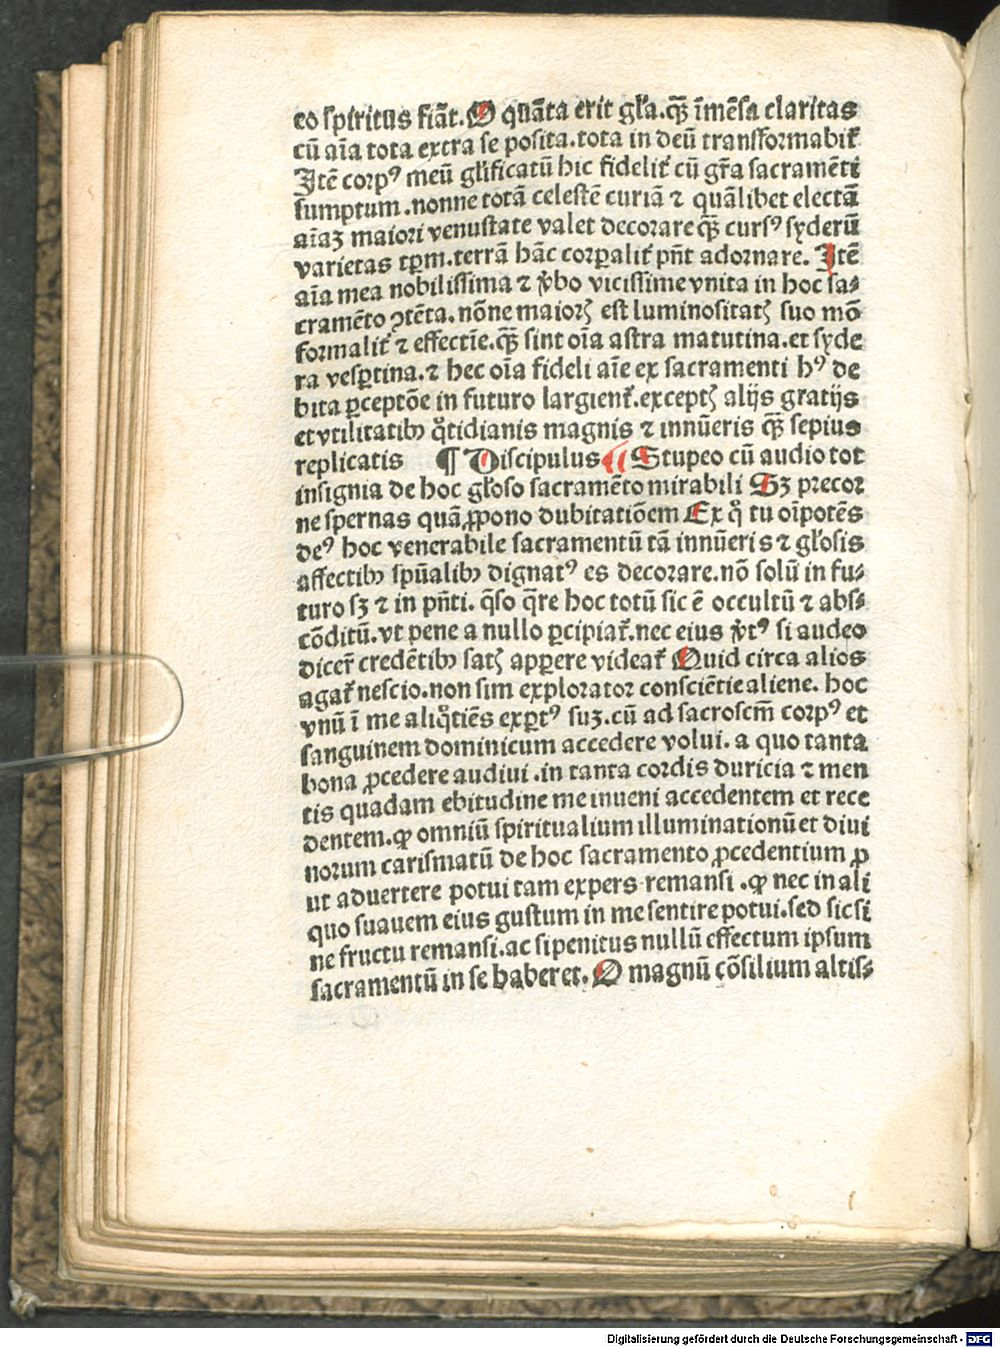 eo spiritus fiāt. O quāta erit gl̄ia. q̄ꝫ īmēsa claritas
cū aīa tota extra se posita. tota in deū transformabit᷑
Itē corpꝰ meū gl̄ificatū hic fidelit᷑ cū gr̄a sacramēti
sumptum. nonne totā celestē curiā ⁊ quālibet electā
aīaꝫ maiori venustate valet decorare q̄ꝫ cursꝰ syderū
varietas tp̄m. terrā hāc corꝑalit᷑ pn̄t adornare. Itē
aīa mea nobilissima ⁊ v̓bo vicissime vnita in hoc sa⸗
cramēto ꝯtēta. nōne maiorꝭ est luminositatꝭ suo mō
formalit᷑ ⁊ effectīe. q̄ꝫ sint oīa astra matutina. et syde
ra vesꝑtina. ⁊ hec oīa fideli aīe ex sacramenti hꝰ de
bita ꝑceptōe in futuro largient᷑. exceptꝭ alijs gratijs
et vtilitatibꝫ qͦtidianis magnis ⁊ innūeris q̄ꝫ sepius
replicatis ¶ Discipulus ¶ Stupeo cū audio tot
insignia de hoc gl̄oso sacramēto mirabili Sꝫ precor
ne spernas quā ꝓpono dubitatiōem Ex qͦ tu oīpotēs
deꝰ hoc venerabile sacramentū tā innūeris ⁊ gl̄osis
affectibꝫ spūalibꝫ dignatꝰ es decorare. nō solū in fu⸗
turo sꝫ ⁊ in pn̄ti. q̄so q̄re hoc totū sic ē occultū ⁊ abs⸗
cōditū. vt pene a nullo ꝑcipiat᷑. nec eius v̓tꝰ si audeo
dicer̄ credētibꝫ satꝭ apꝑere videat᷑ Quid circa alios
agat᷑ nescio. non sim explorator consciētie aliene. hoc
vnū ī me aliqͦtiēs exꝑtꝰ suꝫ. cū ad sacroscm̄ corpꝰ et
sanguinem dominicum accedere volui. a quo tanta
bona ꝓcedere audiui. in tanta cordis duricia ⁊ men
tis quadam ebitudine me inueni accedentem et rece
dentem. ꝙ omniū spiritualium illuminationū et diui
norum carismatū de hoc sacramento ꝓcedentium ꝓ
ut aduertere potui tam expers remansi. ꝙ nec in ali
quo suauem eius gustum in me sentire potui. sed sic si
ne fructu remansi. ac si penitus nullū effectum ipsum
sacramentū in se haberet. O magnū cōsilium altis⸗
Digitalisierung gefördert durch die Deutsche Forschungsgemeinschaft - DFG